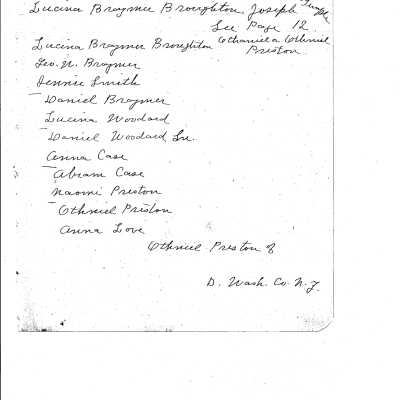 Lucina Braymer Broughton, Joseph Temple
See Page 12
Lucina Braymer Broughton Othaniel a Othniel
Preston
Geo. N. Braymer
Jennie Smith
Daniel Braymer
Lucina Woodard
Daniel Woodard Sr.
Anna Case
Abram Case
Naomi Preston
Othniel Preston
Anna Love
Othniel Preston of
D. Wash. Co. N.Y.